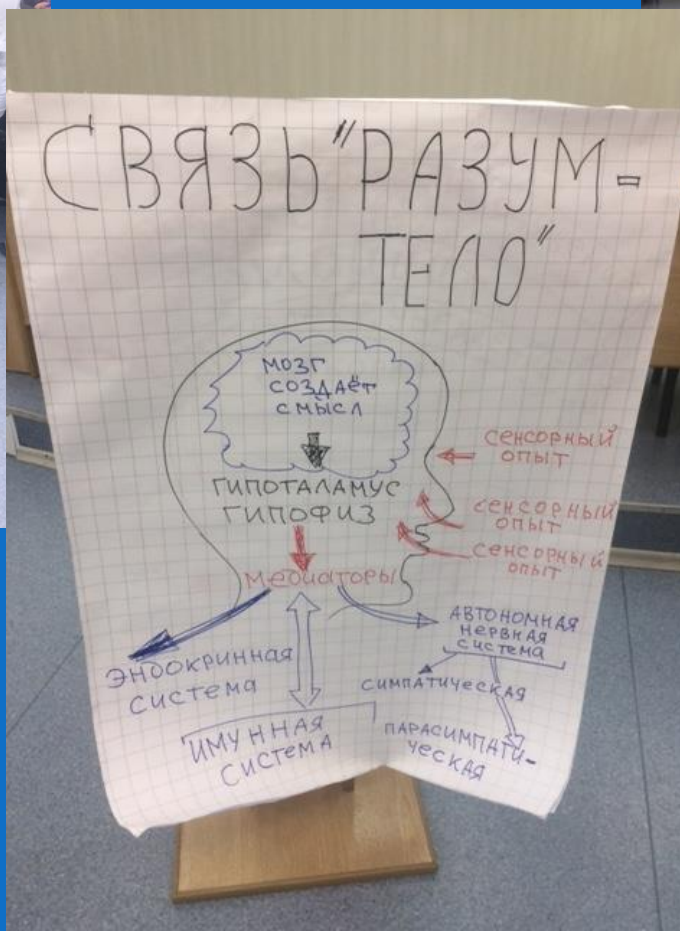 СВЯЗЬ "РАЗУМ-
ТЕЛО"
МОЗГ
СОЗДАЁТ
СМЫСЛ
ГИПОТАЛАМУС
ГИПОФИЗ
МЕДИАТОРЫ
СЕНСОРНЫЙ
ОПЫТ
СЕНСОРНЫЙ
ОПЫТ
СЕНСОРНЫЙ
ОПЫТ
ЭНДОКРИННАЯ
СИСТЕМА
ИМУННАЯ
СИСТЕМА
АВТОНОМНАЯ
НЕРВНАЯ
СИСТЕМА
СИМПАТИЧЕСКАЯ
ПАРАСИМПАТИ-
ЧЕСКАЯ